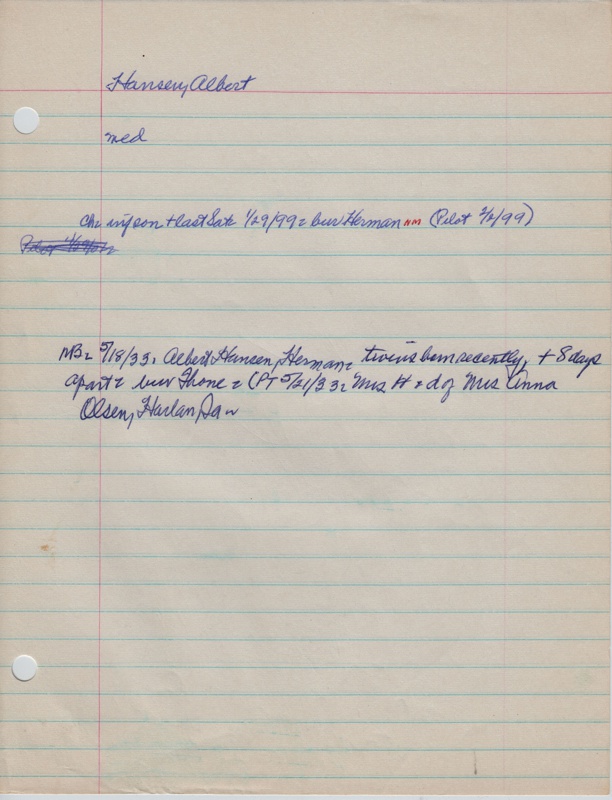 Hansen, Albert
med
Ch= inf son + last Sat= 1/29/99= bur Herman NM (Pilot 2/2/99)
Pilot
NB= 5/18/33= Albert Hansen, Herman= twins born recently, + 8 days
apart= bur Thone= (PT 5/21/33= Mrs H = d of Mrs Anna
Olsen, Harlan, Ia=